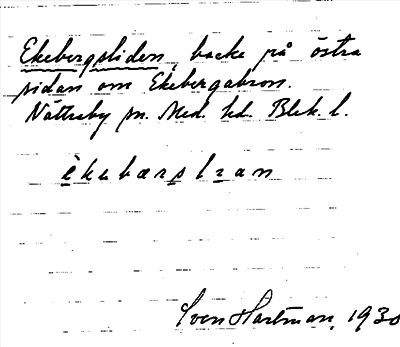 Ekebergsliden, backe på östra
sidan om Ekebergabron.
Nättraby sn. Med. hd. Blek. l.
èkebærslıan
Sven Hartman, 1930